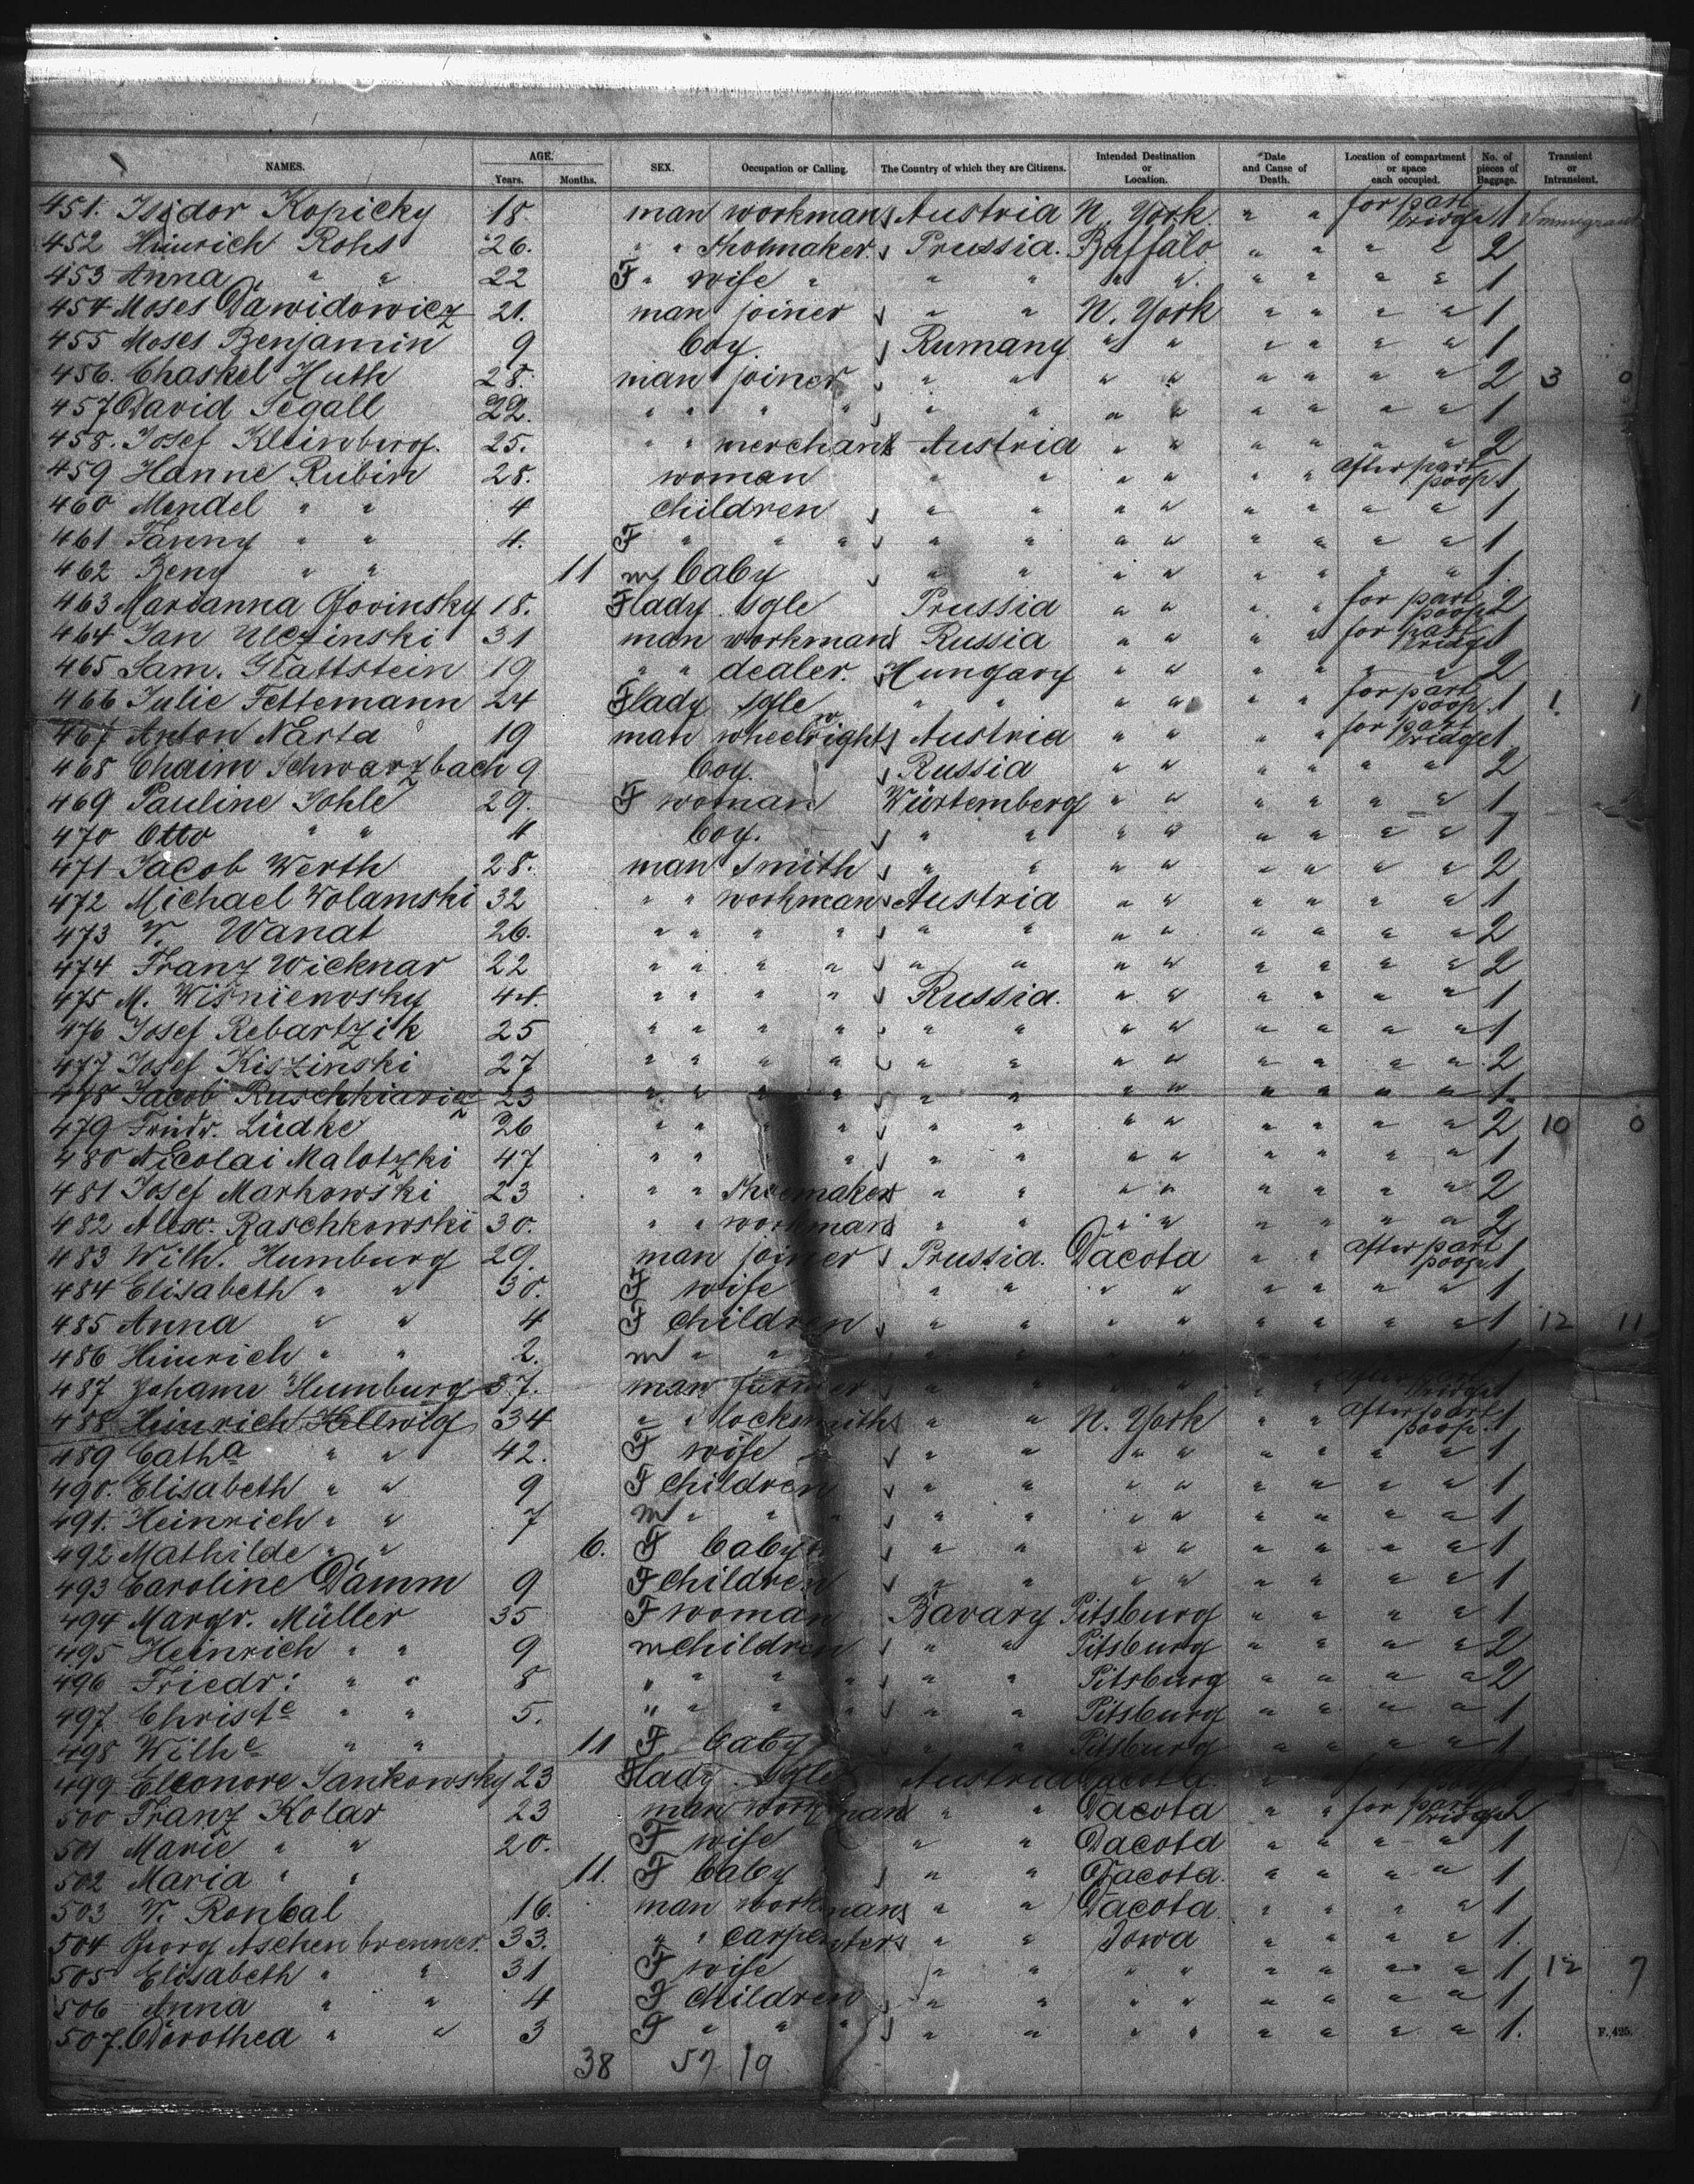 NAMES. AGE. Years. Months. SEX. Occupation or Calling. The Country of which they are Citizens. Intended Destination or Location. Date and Cause of Death. Location of compartment or space each occupied. No. of pieces of Baggage. Transient or Intransient.
451. Isidor Kopicky 18. man workman Austria N. York " " for part bridge 1 Immigrant
452 Heinrich Rohs 26. " " Shomaker. Prussia. Buffalo " " " " 2
453 Anna " " 22 F " wife " " " " " " " " " 1
454 Moses Dawidowicz 21. man joiner " " N. York " " " " 1
455 Moses Benjamin 9 boy. Rumany " " " " " " 1
456. Chaskel Huth 28. man joiner " " " " " " " " 2 3 0
457 David Segall 22. " " " " " " " " " " " " 1
458. Josef Kleinberg. 25. " " merchant Austria " " " " " " 2
459 Hanne Rubin 28. woman " " " " " " after part poop 1
460 Mendel " " 4 children " " " " " " " " 1
461 Fanny " " 4. F " " " " " " " " " " " 1
462 Beny " " 11 m baby " " " " " " " " 1.
463 Marianna Govinsky 18. F lady sgle Prussia " " " " for part poop 2
464 Jan Ulczinski 31 man workman Russia " " " " for part bridge 1
465 Sam. Glattstein 19 " " dealer. Hungary " " " " " " 2
466 Julie Fettemann 24 F lady sgle " " " " " " for part poop. 1 1 1
467 Anton Narta 19 man wheelwright Austria " " " " for part bridge 1
468 Chaim Schwarzbach 9 boy. Russia " " " " " " 2
469 Pauline Sohle 29. F woman Würtemberg " " " " " " 1
470 Otto " " 4 boy. " " " " " " " " 1
471 Jacob Werth 28. man smith " " " " " " " " 2
472 Michael Wolamski 32 " " workman Austria " " " " " " 1
473 V. Wanat 26. " " " " " " " " " " " " 2
474 Franz Wicknar 22 " " " " " " " " " " " " 2
475 M. Wisnienosky 44. " " " " Russia. " " " " " " 1
476 Josef Rebartzik 25 " " " " " " " " " " " " 1
477 Josef Kiszinski 27 " " " " " " " " " " " " 2
478 Jacob Ruschhiariz 23 " " " " " " " " " " " " 1.
479 Friedr. Lüdke 26 " " " " " " " " " " " " 2 10 0
480 Nicolai Malotzki 47 " " " " " " " " " " " 1
481 Josef Markowski 23 " " Shoemaker " " " " " " " " 2
482 Alex. Raschkowski 30. " " workman " " " " " " " " 2
483 Wilh. Humburg 29. man joiner Prussia. Dacota " " after part poop 1
484 Elisabeth " " 30. F wife " " " " " " " " 1
485 Anna " " 4 F children " " " " " " " " 1 12 11
486 Heinrich " " 2. m " "
487 Johann Humburg 37. man farmer " " after part bridge 1
488 Heinrich Hellwig 34 " " locksmith " " N. York " " after part poop. 1
489 Catha " " 42. F wife " " " " " " " " 1
490. Elisabeth " " 9 F children " " " " " " " " 1
491. Heinrich " " 7 m " " " " " " " " " " 1
492 Mathilde " " 6. F baby " " " " " " " " 1
493 Caroline Damm 9 F children " " " " " " " " 1
494 Margr. Müller 35 F woman Bavary Pitsburg " " " " 1
495 Heinrich " " 9 m children " " Pitsburg " " " " 2
496 Friedr: " " 8 " " " " " " Pitsburg " " " " 2
497 Christe " " 5. " " " " " " Pitsburg " " " " 1
498 Wilhe " " 11 F baby " " Pitsburg " " " " 1
499 Eleonore Sankowsky 23 F lady sgle Austria Dacota "
500 Franz Kolar 23 man workman " " Dacota " " for part bridge 2
501 Marie " " 20. F wife " " Dacota " " " " 1
502 Maria " " 11. F baby " " Dacota. " " " " 1
503 V. Ronbal 16. man workman " " Dacota " " " " 1
504 Georg Aschenbrenner. 33. " " carpenter " " Iowa " " " " 1.
505 Elisabeth " " 31 F wife " " " " " " " " 1 12 7
506 Anna " " 4 F children " " " " " " " " 1
507. Dorothea " " 3 F " " " " " " " " " " " 1. F. 425.
38 57 19